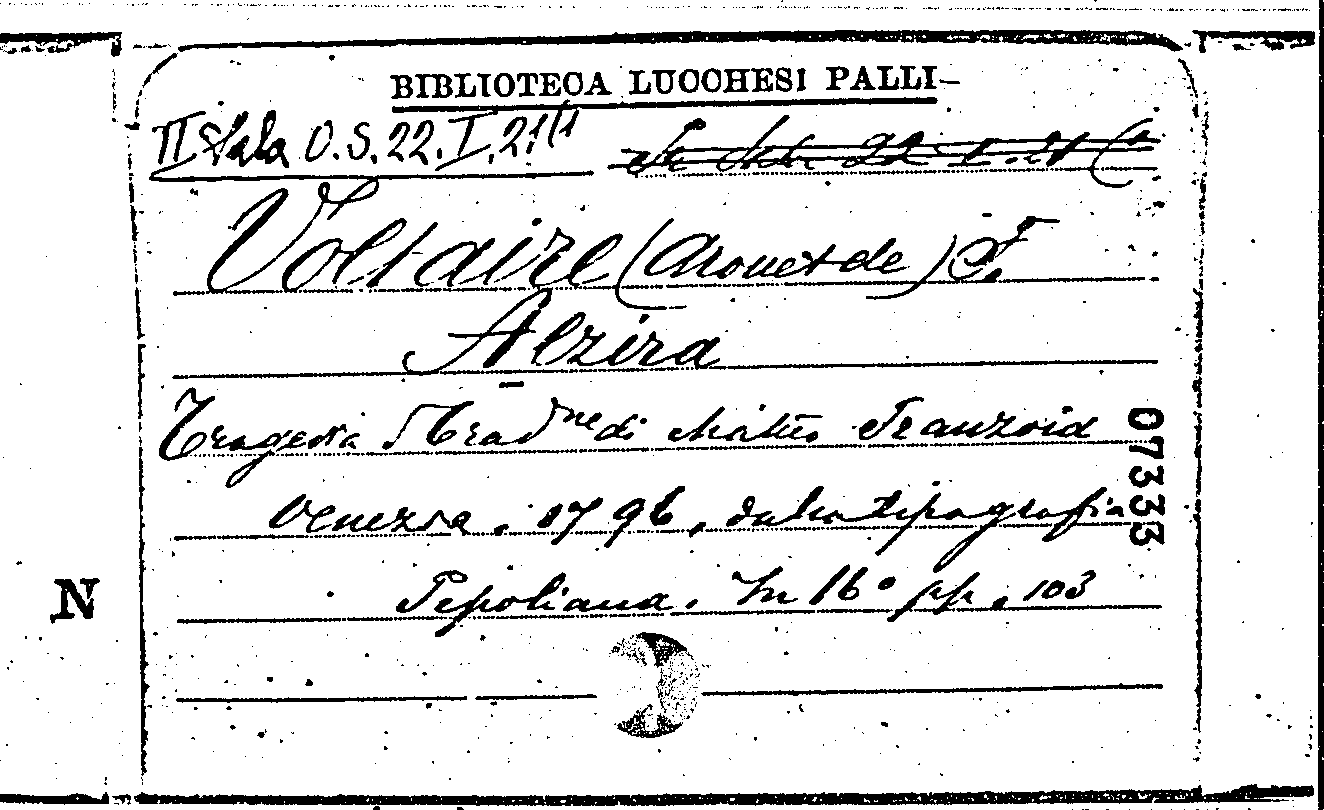 BIBLIOTECA LUCCHESI PALLI
II Sala O.S.22.I.21(1
Voltaire (Arouet de) F.
Alzira
Tragedia Trad.ne di Matteo Franzoia
Venezia. 1796, dalla tipografia
Pepoliana. In 16° pp. 103
07333
N